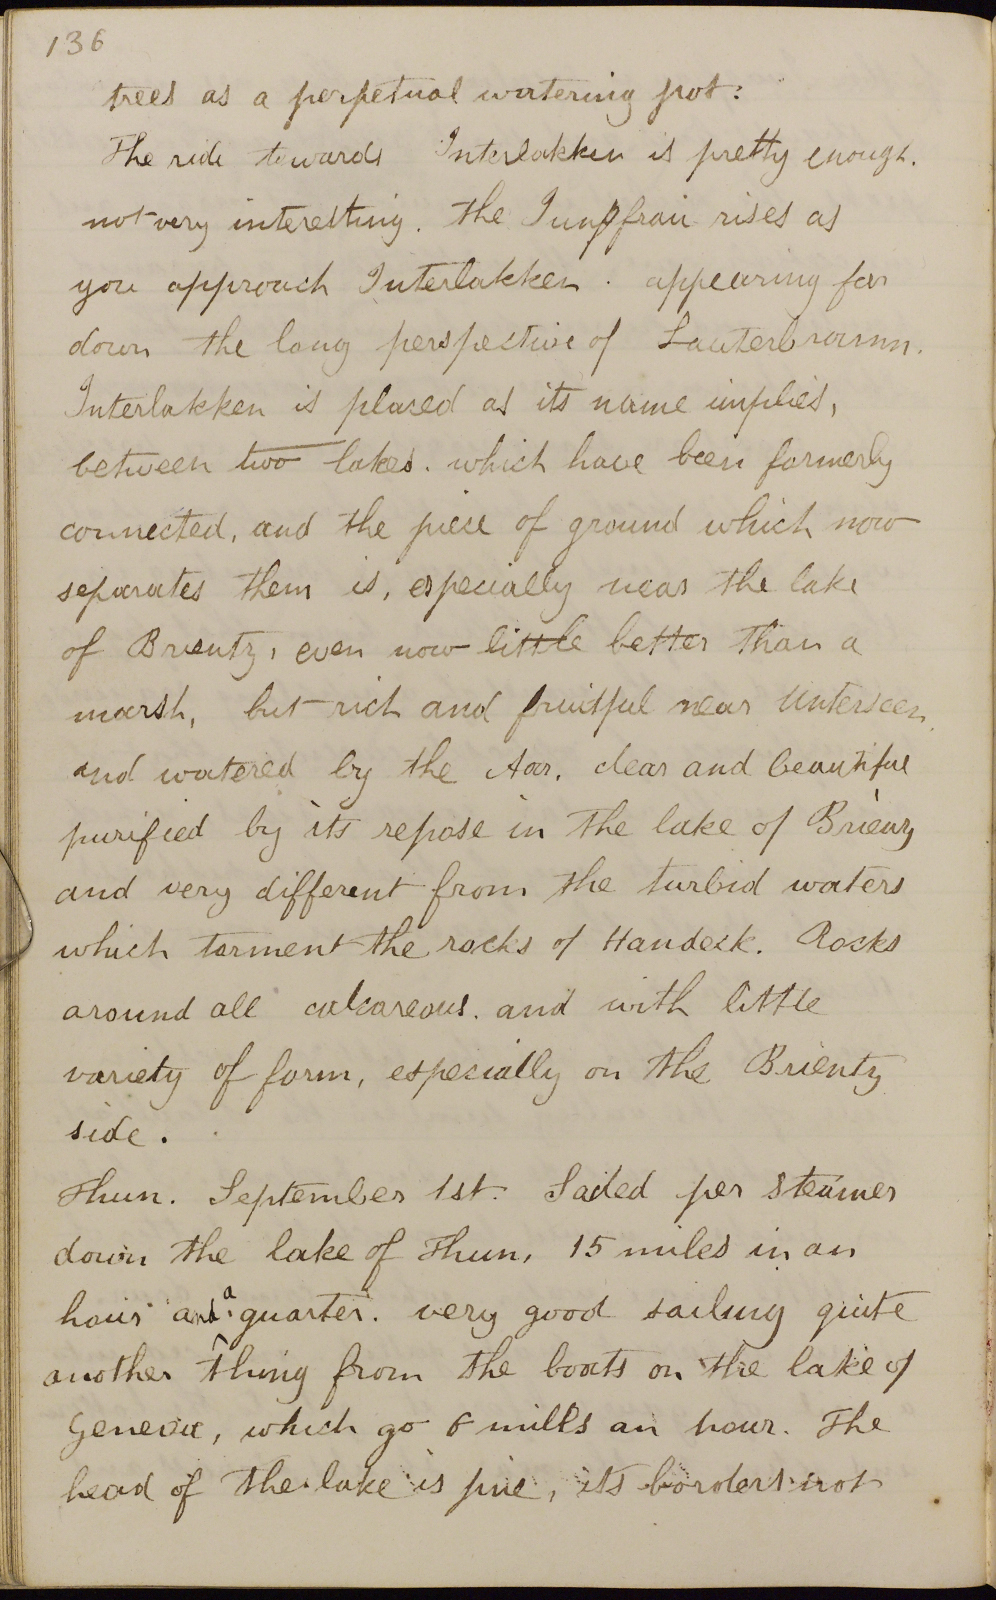 136
trees as a perpetual watering pot:
The ride towards Interlakken is pretty enough.
not very interesting. the Jungfrau rises as
you approach Interlakken. appearing far
down the long perspective of Lauterbrunn.
Interlakken is placed as its name implies,
between two lakes. which have been formerly
connected, and the piece of ground which now
separates them is, especially near the lake
of Brientz, even now little better than a
marsh, but rich and fruitful near Unterseen.
and watered by the Aar. clear and beautiful
purified by its repose in the lake of Brienz
and very different from the turbid waters
which torment the rocks of Handeck. Rocks
around all calcareous. and with little
variety of form, especially on the Brientz
side.
Thun. September 1st. Sailed per steamer
down the lake of Thun, 15 miles in an
hour and a quarter. very good sailing quite
another thing from the boats on the lake of
Geneva, which go 6 miles an hour. The
head of the lake is fine, its borders not